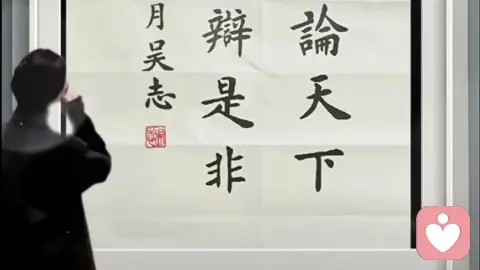 論天下
辯是非
月吴志